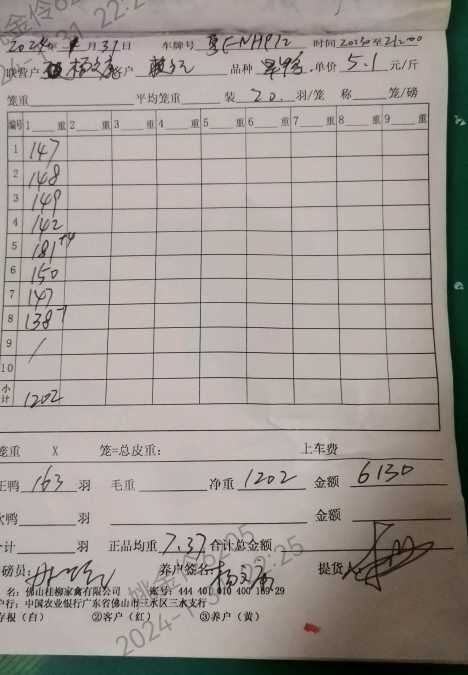 2024年1月31日 车牌号 粤E-NHP12 时间 20:50至21:00
联营户 杨文 客户 品种 单价 5.1 元/斤
笼重 平均笼重 装 20 羽/笼 称 笼/磅
编号 1 重 2 重 3 重 4 重 5 重 6 重 7 重 8 重 9 重
1 147
2 148
3 149
4 142
5 181+4
6 150
7 147
8 138-1
9 /
10
小计 1202
笼重 X 笼=总皮重: 上车费
正鸭 163 羽 毛重 净重 1202 金额 6130
次鸭 羽 金额
合计 羽 正品均重 7.37 合计总金额
磅员: 养户签名: 杨文 提货人
名:佛山桂柳家禽有限公司 账号:444 401 010 400 169 29
户行:中国农业银行广东省佛山市三水区三水支行
存根(白) ②客户(红) ③养户(黄)
姚金伶6205
2024-1-31 22:25